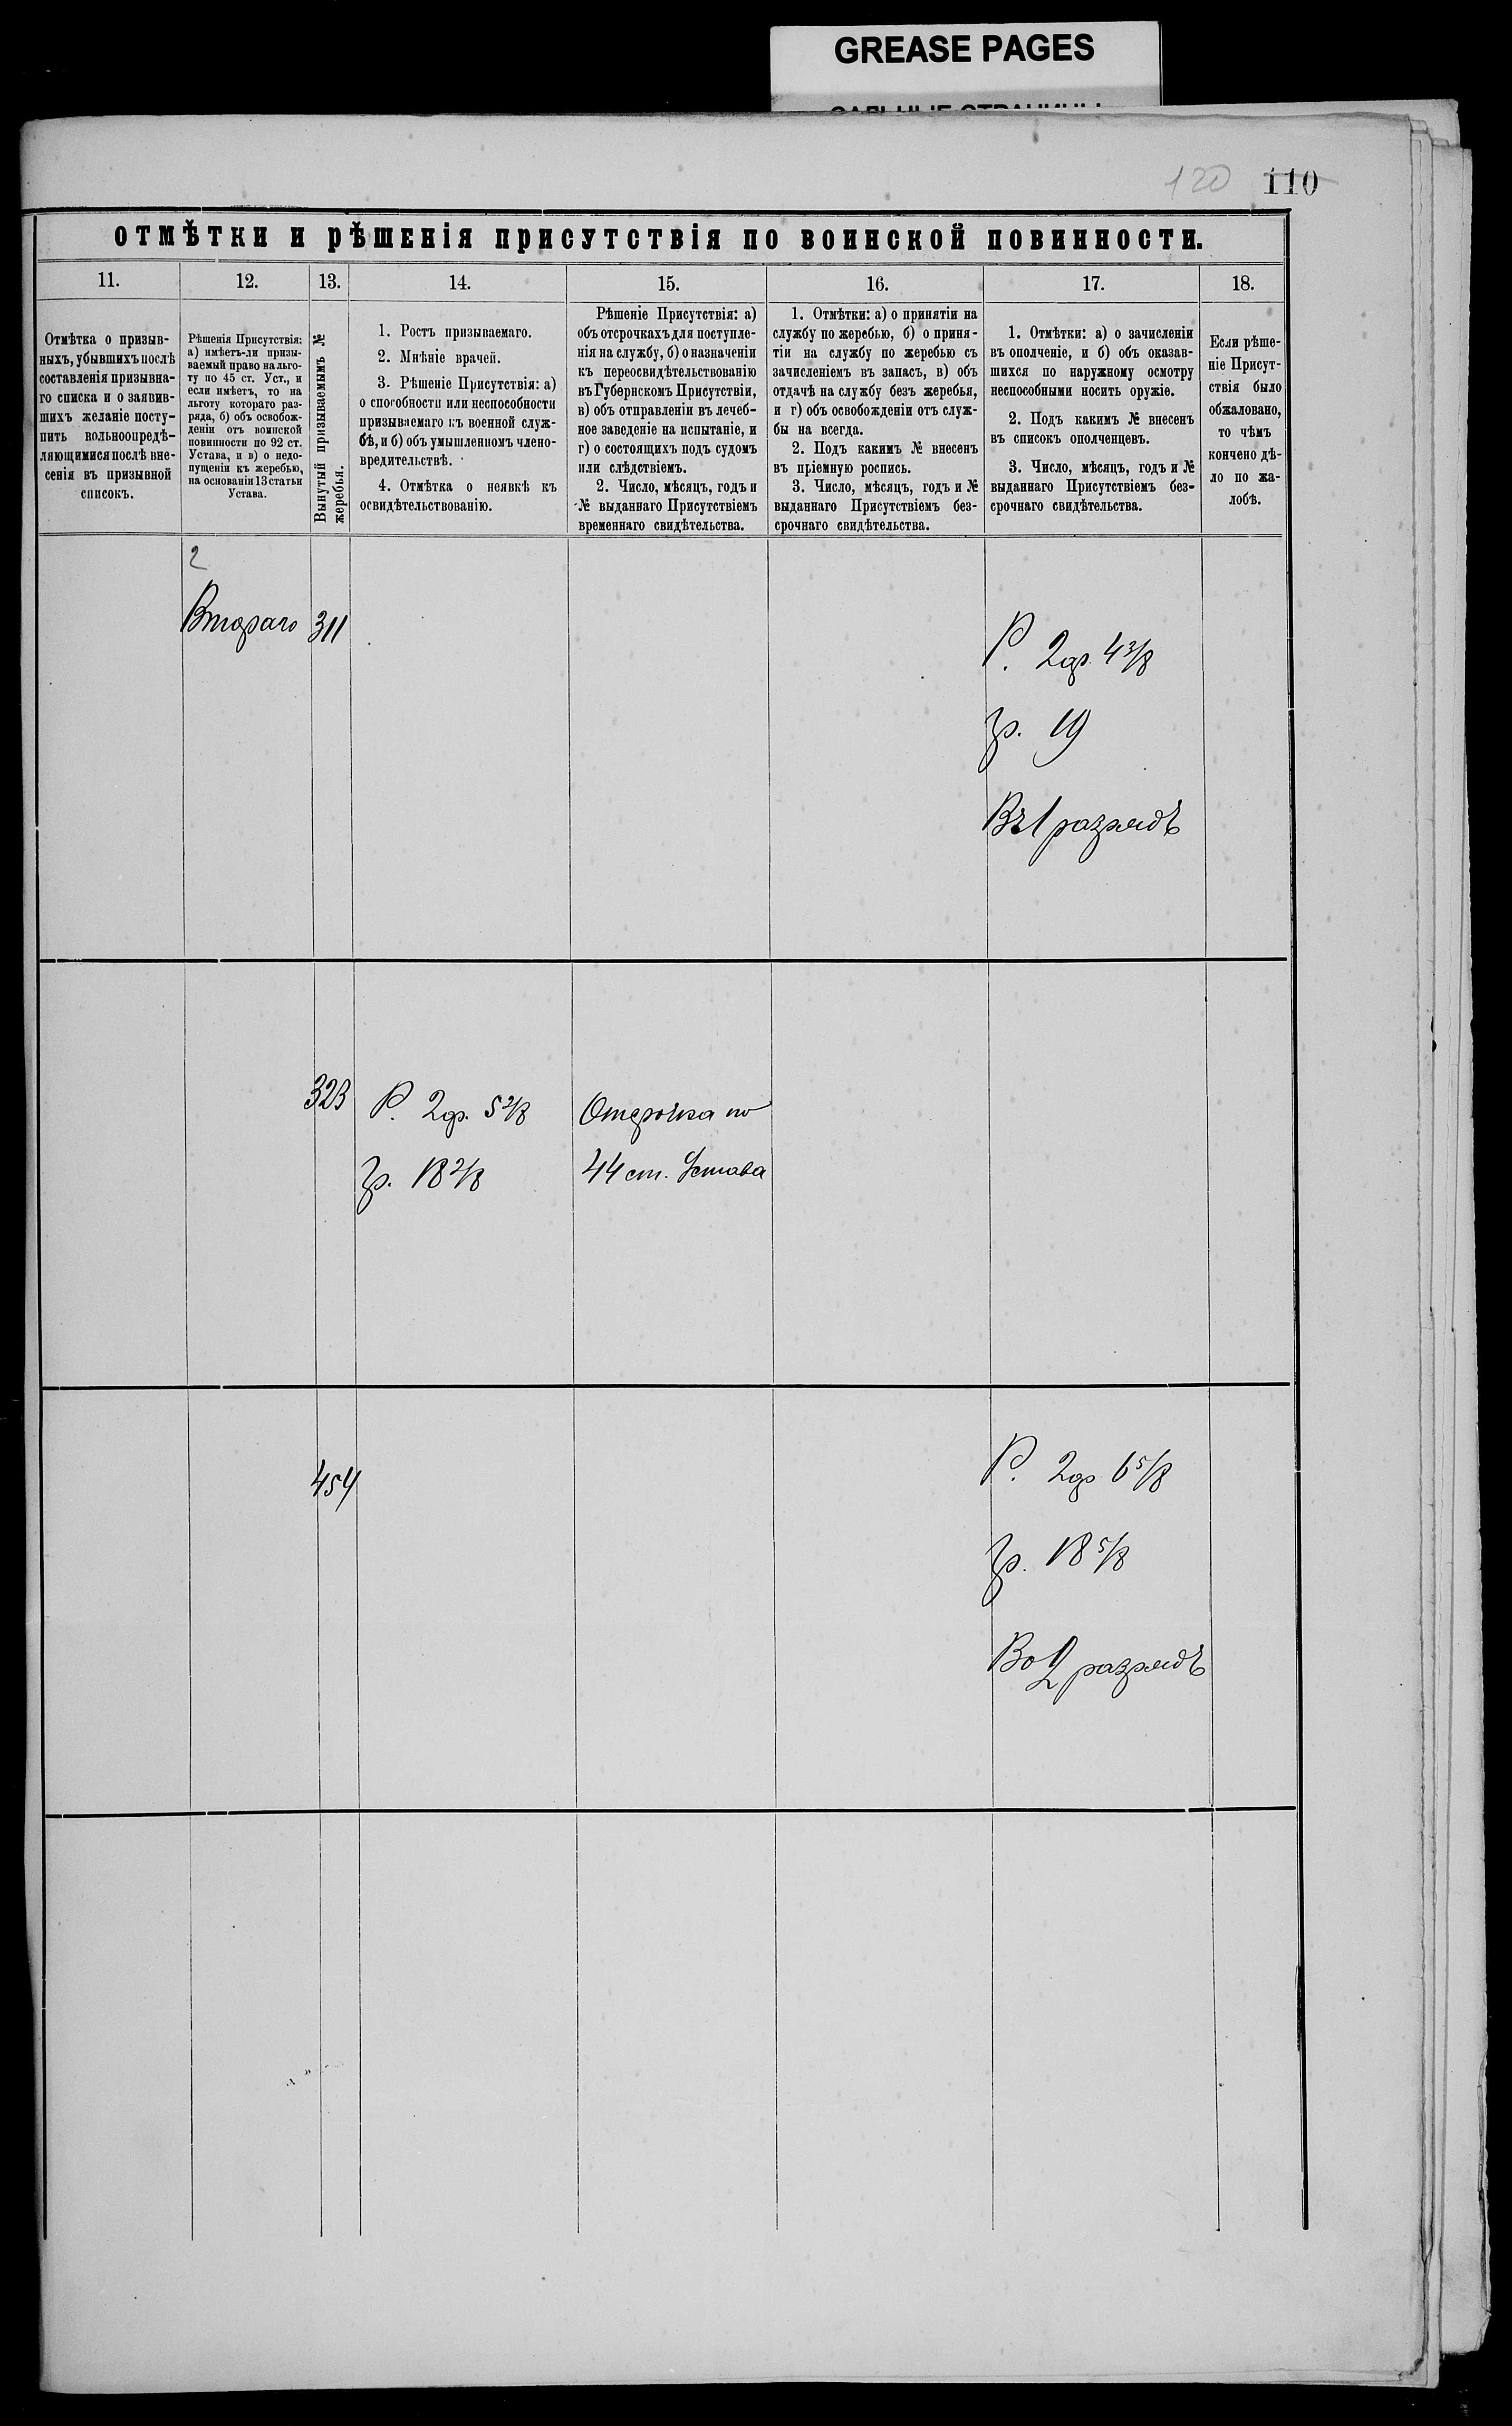 GREASE PAGES
САЛЬНЫЕ СТРАНИЦЫ
120 110
ОТМѢТКИ И РѢШЕНІЯ ПРИСУТСТВІЯ ПО ВОИНСКОЙ ПОВИННОСТИ.
11.
12.
13.
14.
15.
16.
17.
18.
Отмѣтка о призыв-
ныхъ, убывшихъ послѣ
составленія призывна-
го списка и о заявив-
шихъ желаніе посту-
пить вольноопредѣ-
ляющимися послѣ вне-
сенія въ призывной
списокъ.
Рѣшенія Присутствія:
а) имѣетъ-ли призы-
ваемый право на льго-
ту по 45 ст. Уст., и
если имѣетъ, то на
льготу котораго раз-
ряда, б) объ освобож-
деніи отъ воинской
повинности по 92 ст.
Устава, и в) о недо-
пущеніи къ жеребью,
на основаніи 13 статьи
Устава.
Вынутый призываемымъ №
жеребья.
1. Ростъ призываемаго.
2. Мнѣніе врачей.
3. Рѣшеніе Присутствія: а)
о способности или неспособности
призываемаго къ военной служ-
бѣ, и б) объ умышленномъ члено-
вредительствѣ.
4. Отмѣтка о неявкѣ къ
освидѣтельствованію.
Рѣшеніе Присутствія: а)
объ отсрочкахъ для поступле-
нія на службу, б) о назначеніи
къ переосвидѣтельствованію
въ Губернскомъ Присутствіи,
в) объ отправленіи въ лечеб-
ное заведеніе на испытаніе, и
г) о состоящихъ подъ судомъ
или слѣдствіемъ.
2. Число, мѣсяцъ, годъ и
№ выданнаго Присутствіемъ
временнаго свидѣтельства.
1. Отмѣтки: а) о принятіи на
службу по жеребью, б) о приня-
тіи на службу по жеребью съ
зачисленіемъ въ запасъ, в) объ
отдачѣ на службу безъ жеребья,
и г) объ освобожденіи отъ служ-
бы на всегда.
2. Подъ какимъ № внесенъ
въ пріемную роспись.
3. Число, мѣсяцъ, годъ и №
выданнаго Присутствіемъ без-
срочнаго свидѣтельства.
1. Отмѣтки: а) о зачисленіи
въ ополченіе, и б) объ оказав-
шихся по наружному осмотру
неспособными носить оружіе.
2. Подъ какимъ № внесенъ
въ списокъ ополченцевъ.
3. Число, мѣсяцъ, годъ и №
выданнаго Присутствіемъ без-
срочнаго свидѣтельства.
Если рѣше-
ніе Присут-
ствія было
обжаловано,
то чѣмъ
кончено дѣ-
ло по жа-
лобѣ.
2
Втораго 311
Р. 2 ар. 4 3/8
гр. 19
Въ 1 разрядъ
323 Р. 2 ар. 5 2/8 Отсрочка по
гр. 18 2/8 44 ст. Устава
454
Р. 2 ар 6 5/8
гр. 18 5/8
Во 2 разрядъ